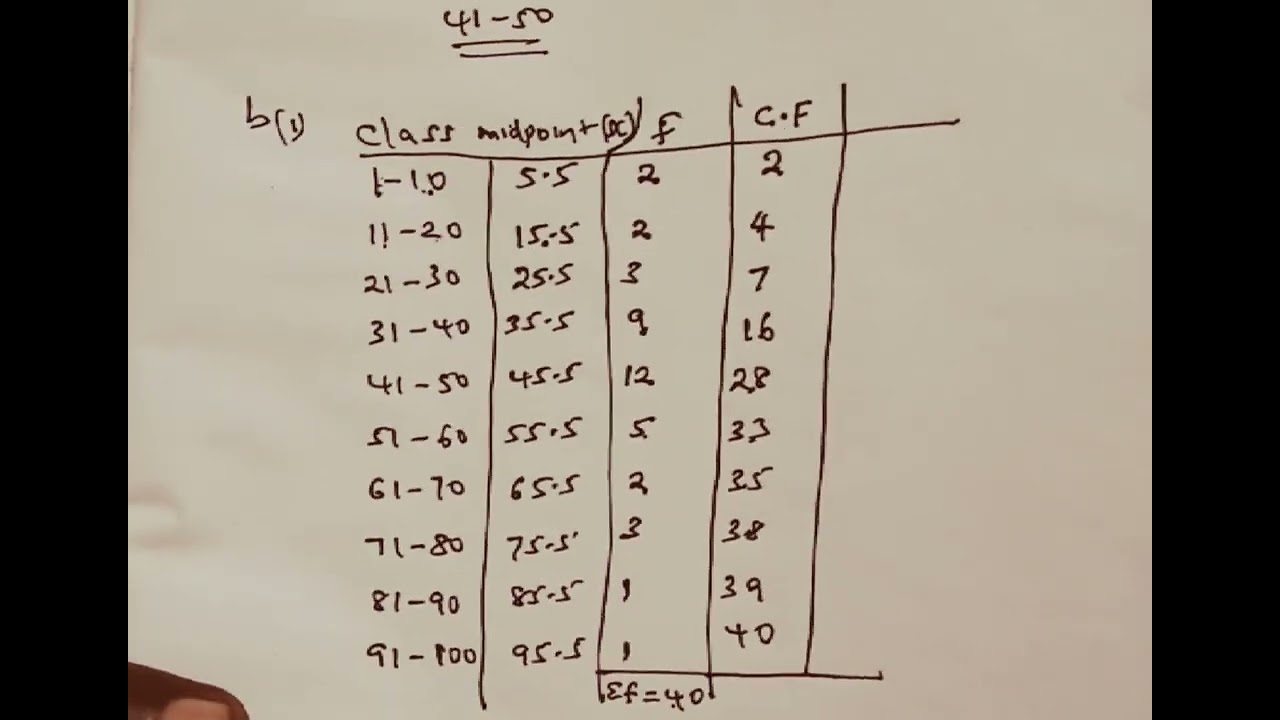 41-50
b(i) Class midpoint(x) f C.F
1-10 5.5 2 2
11-20 15.5 2 4
21-30 25.5 3 7
31-40 35.5 9 16
41-50 45.5 12 28
51-60 55.5 5 33
61-70 65.5 2 35
71-80 75.5 3 38
81-90 85.5 1 39
91-100 95.5 1 40
Σf=40